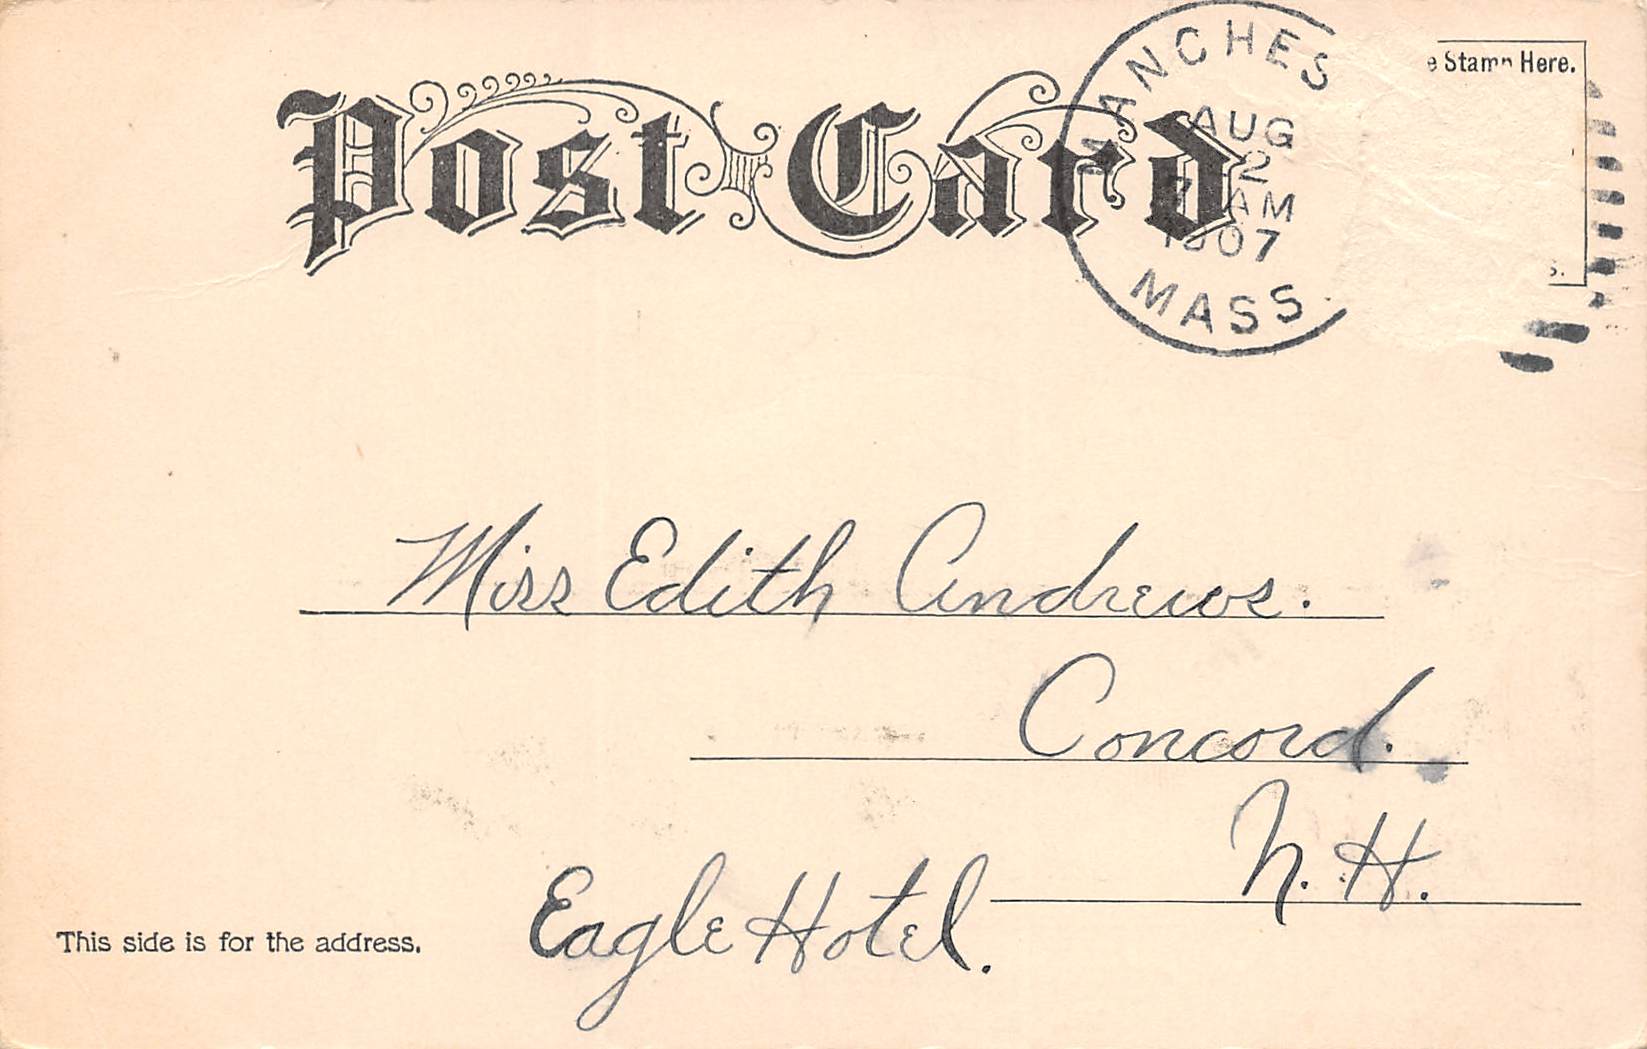 Post Card
MANCHES
AUG
2
AM
1907
MASS.
e Stamp Here.
s.
Miss Edith Andrews.
Concord.
N. H.
Eagle Hotel.
This side is for the address.